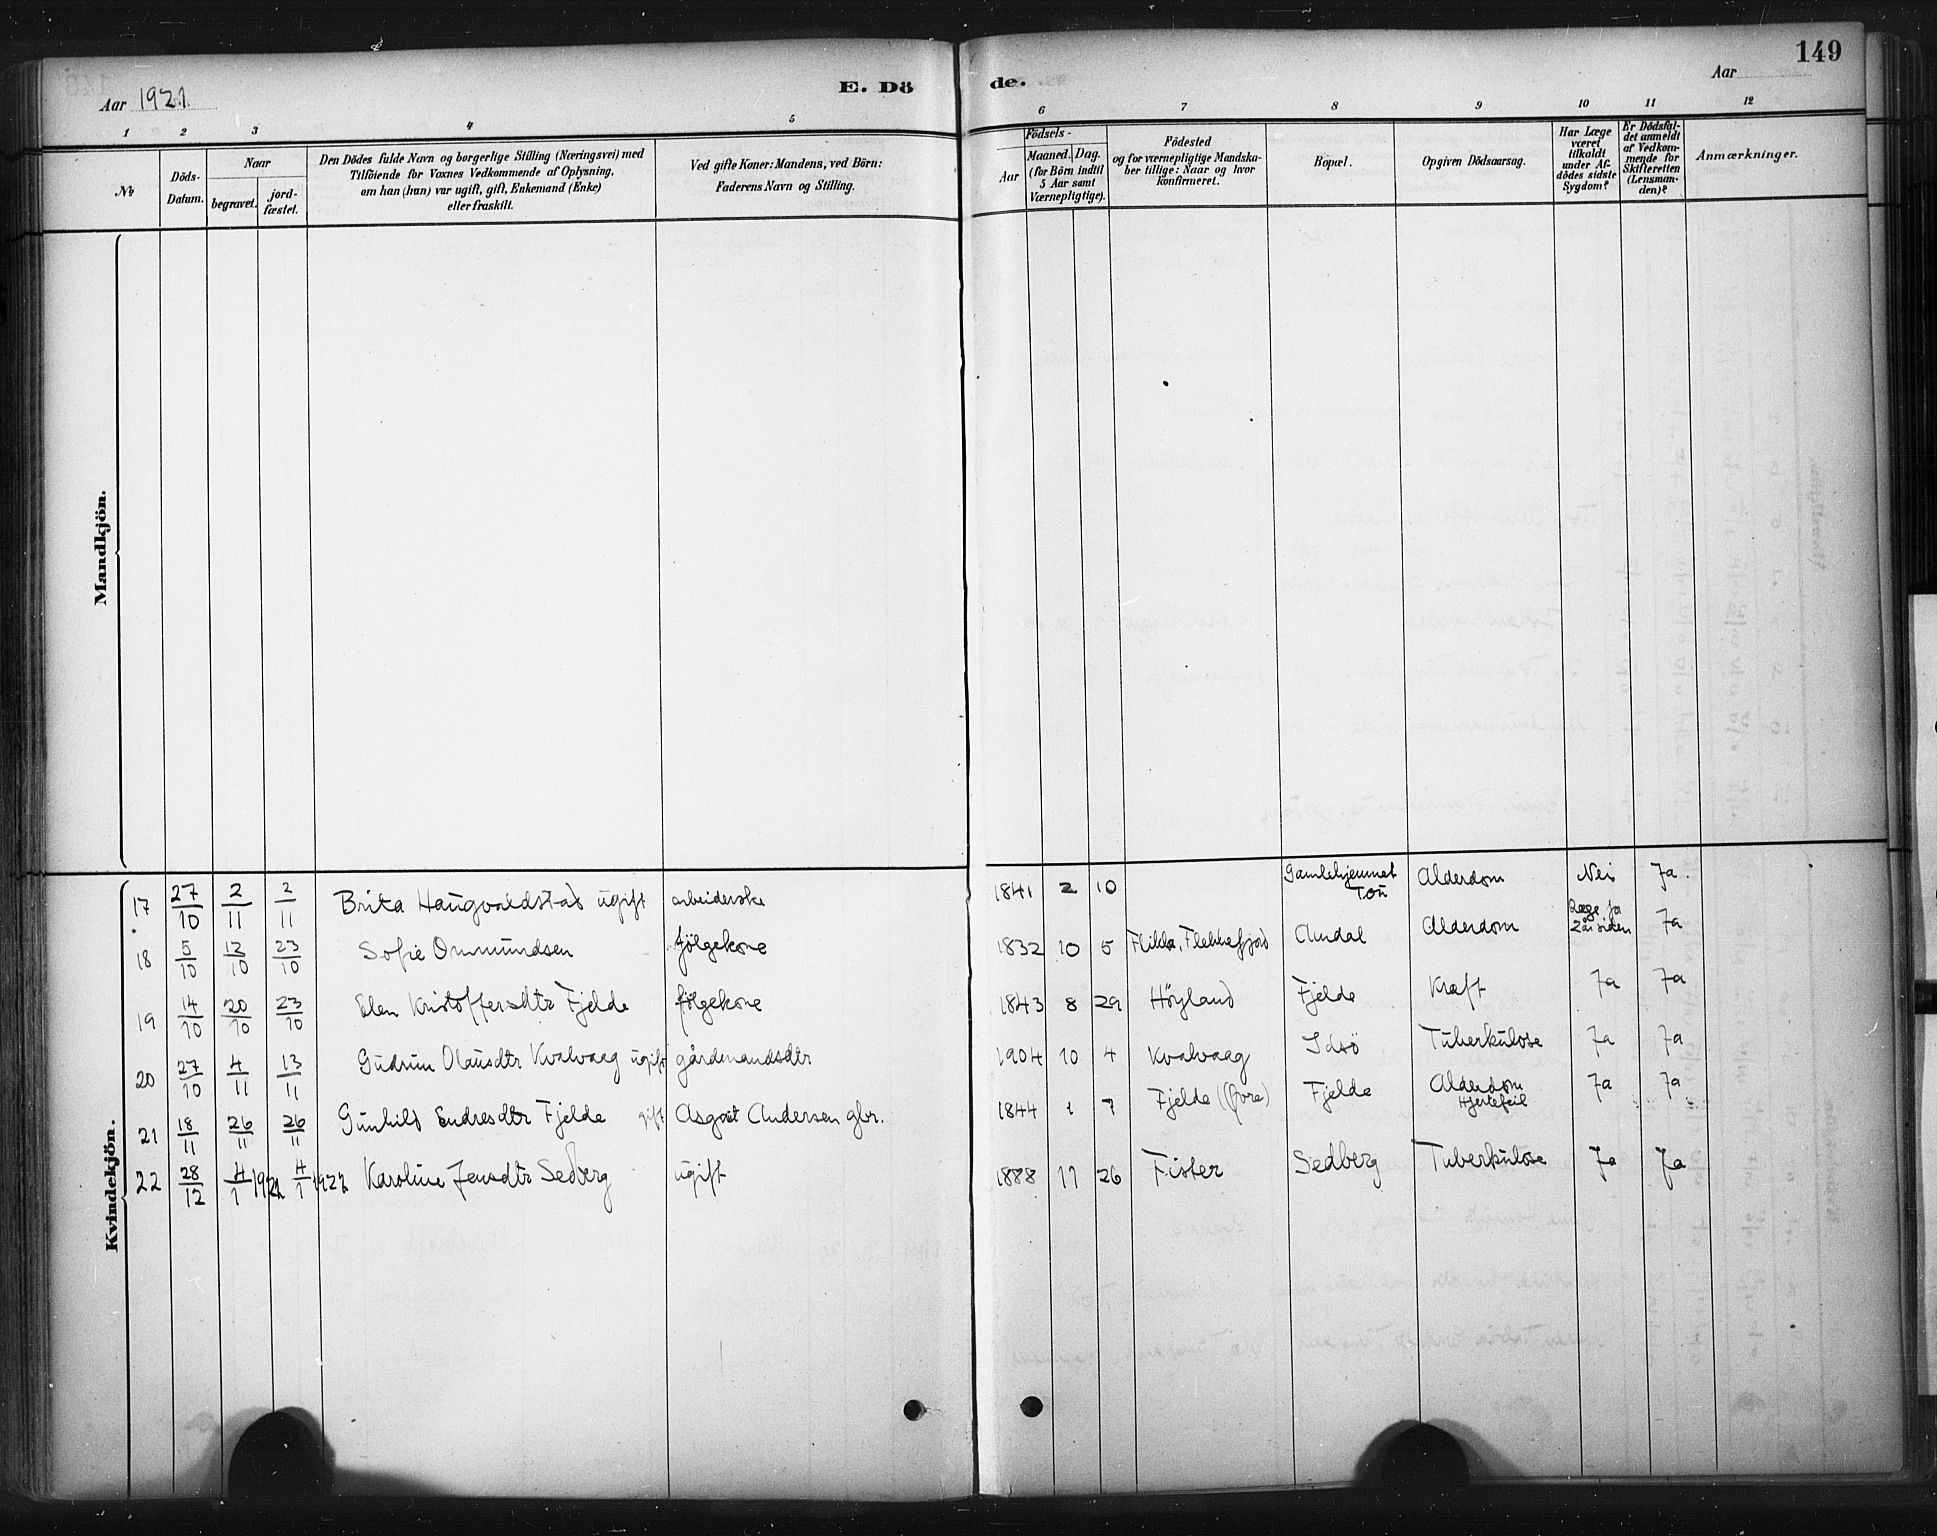 149
Aar 1921.
E. Dö
de.
Aar
1 2 3 4 5 6 7 8 9 10 11 12
№
Döds-
Datum.
Naar
begravet.
jord-
fæstet.
Den Dödes fulde Navn og borgerlige Stilling (Næringsvei) med
Tilföiende for Voxnes Vedkommende af Oplysning,
om han (hun) var ugift, gift, Enkemand (Enke)
eller fraskilt.
Ved gifte Koner: Mandens, ved Börn:
Faderens Navn og Stilling.
Födsels-
Aar
Maaned. Dag.
(for Börn indtil
5 Aar samt
Værnepligtige).
Födested
og for værnepligtige Mandska-
ber tillige: Naar og hvor
konfirmeret.
Bopæl.
Opgiven Dödsaarsag.
Har Læge
været
tilkaldt
under Af-
dödes sidste
Sygdom?
Er Dödsfal-
det anmeldt
af Vedkom-
mende for
Skifteretten
(Lensman-
den)?
Anmærkninger.
Mandkjön.
Kvindekjön.
17 27/10 2/11 2/11 Brita Haugvaldstad ugift arbeiderske 1841 2 10 Gamlehjemmet Tou Alderdom Nei Ja.
18 5/10 12/10 23/10 Sofie Ommundsen følgekone 1832 10 5 Flikka, Flekkefjord Alderdom Læge for 2 år siden Ja
19 14/10 20/10 23/10 Elen Kristoffersdtr Fjelde følgekone 1843 8 29 Höyland Fjelde Kræft Ja Ja
20 27/10 4/11 13/11 Gudrun Olausdtr Kvalvaag ugift gårdmandsdtr 1904 10 4 Kvalvaag Idsö Tuberkulose Ja Ja
21 18/11 26/11 26/11 Gunhild Endresdtr Fjelde gift Asgaut Andersen gbr. 1844 1 7 Fjelde (Øvre) Fjelde Alderdom Hjertefeil Ja Ja
22 28/12 4/1 1922 4/1 1922 Karoline Jensdtr Sedberg ugift 1888 11 26 Fister Sedberg Tuberkulose Ja Ja